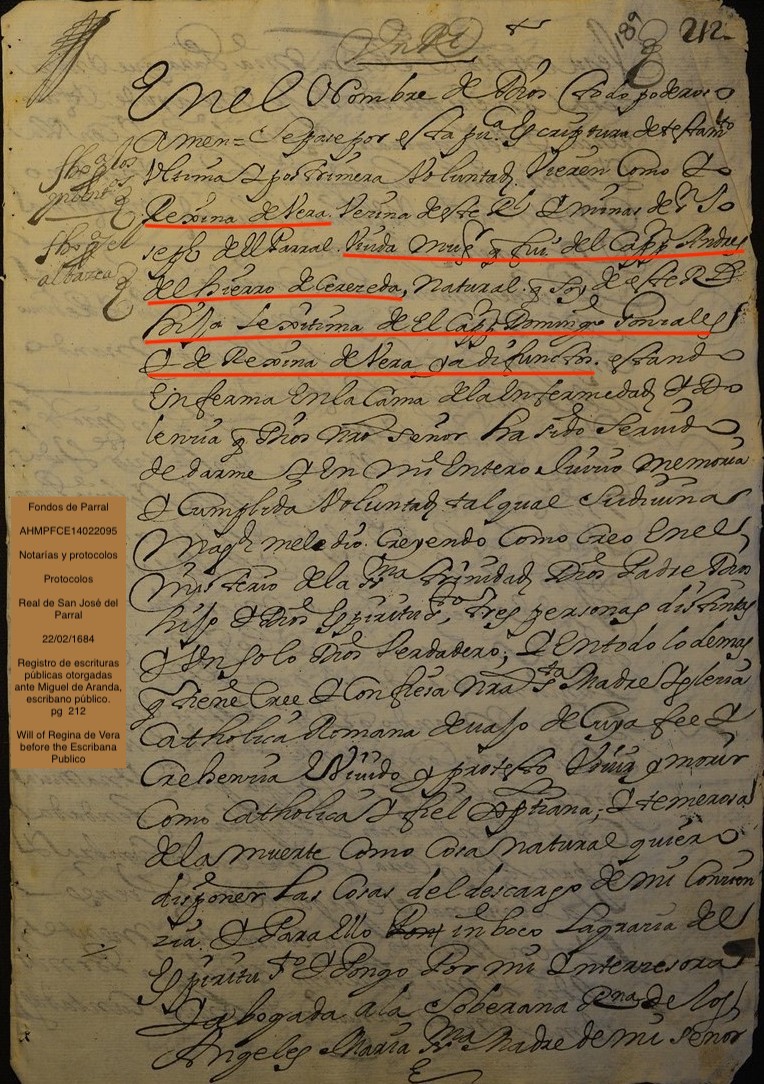 189
212
En el Nombre de Dios Todo poderoso
Amen = Sepase por esta pu.ca Escriptura de testam.to
Ultima y postrimera Voluntad Vieren Como Yo
Rexina de Vera Vezina de este Rl y minas de S Jo
seph del Parral Viuda muger q fui del Capp.n Andres
del hierro de Cerezeda, Natural q soy de este Rl
hija lexitima de El Capp.n Domingo Gonzales
y de Rexina de Vera ya difunctos estando
Enferma En la Cama de la Enfermedad q Do
lenzia q Dios nro señor ha sido Servido
de darme y En mi Entero Juizio memoria
y Cumplida Voluntad tal qual Su divina
Magd me le dio Creyendo Como Creo En el
Misterio de la SSma Trinidad Dios Padre Dios
hijo y Dios Espiritu S.to tres personas distintas
y Un Solo Dios Verdadero, y En todo lo demas
q tiene Cree y Confiesa nra S.ta Madre Iglesia
Catholica Romana devajo de Cuya fee y
Crehenzia he Vivido y protesto Vivir y morir
Como Catholica y fiel Xptiana, y temerosa
de la muerte Como Cosa natural quiero
disponer las Cosas del descargo de mi Conzien
zia. y Para Ello inboco La grazia del
Espiritu S.to y Pongo Por mi Yntersesora
y abogada a la Soberana Reyna de los
Angeles Maria SSma Madre de mi Señor
fho a los
fho a el
albacea
Fondos de Parral
AHMPFCE14022095
Notarías y protocolos
Protocolos
Real de San José del
Parral
22/02/1684
Registro de escrituras
públicas otorgadas
ante Miguel de Aranda,
escribano público.
pg 212
Will of Regina de Vera
before the Escribana
Publico